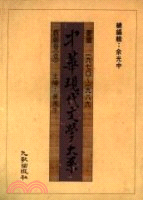 總編輯：余光中
臺灣 一九七〇～一九八九
中華現代文學大系
九歌出版社